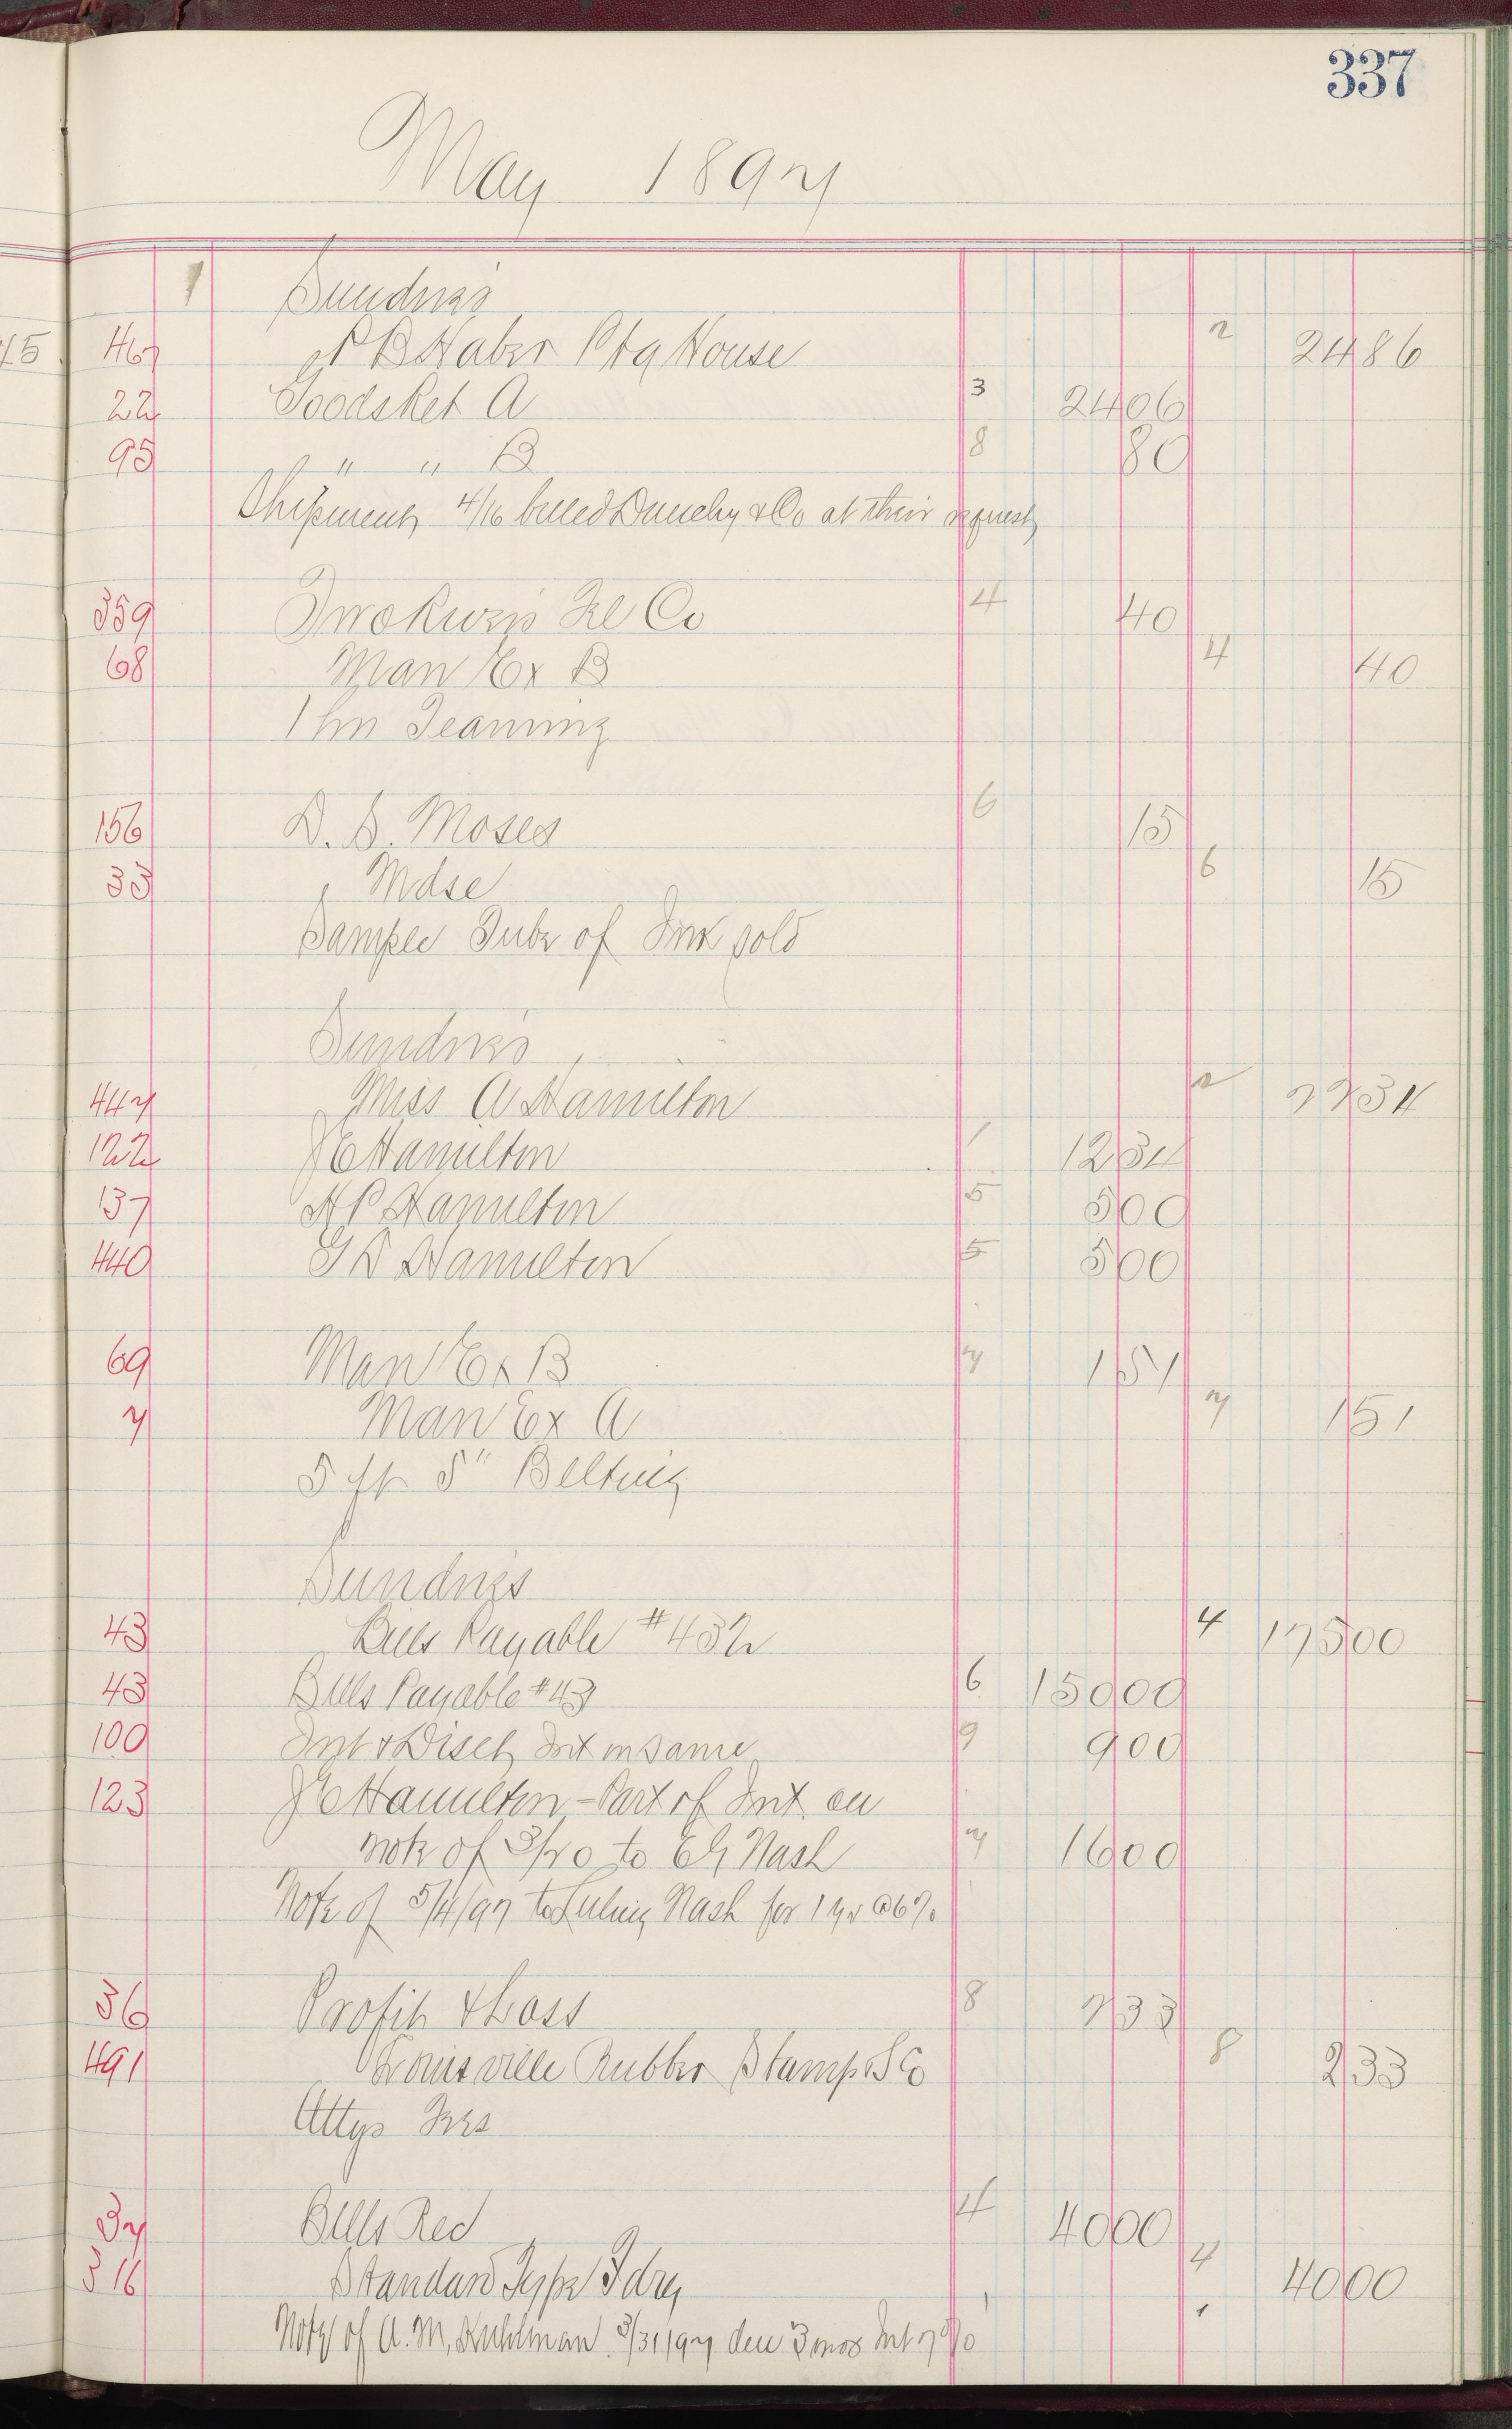 337
May 1897
1 Sundries
45 467 P B Haber Ptg House 2 2486
22 Goods Ret A 3 2406
95 " " B 8 80
Shipment 4/16 billed & Co at their request
359 Co 4 40
68 Man Ex B 4 40
1 hr Teaming
156 D. S. Moses 6 15
33 Mdse 6 15
Sample Tube of Ink sold
Sundries
447 Miss A Hamilton 2 2234
122 J E Hamilton 1 1234
137 H P Hamilton 5 500
440 Hamilton 5 500
69 Man Ex B 7 151
7 Man Ex A 7 151
5 ft 5" Belting
Sundries
43 Bills Payable #432 4 17500
43 Bills Payable #43 6 15000
100 Int & Disct Int on same 9 900
123 J E Hamilton - Part of Int on
note of 3/20 to E G Nash 7 1600
Note of 5/4/97 to Nash for 1 yr @6%
36 Profit & Loss 8 233
491 Louisville Rubber Stamp & S Co 8 233
Attys Fees
37 Bills Rec 4 4000
316 Standard Type Fdry 4 4000
1
Note of A. M. Kuhlman 3/31/97 due 3 mos Int 7%